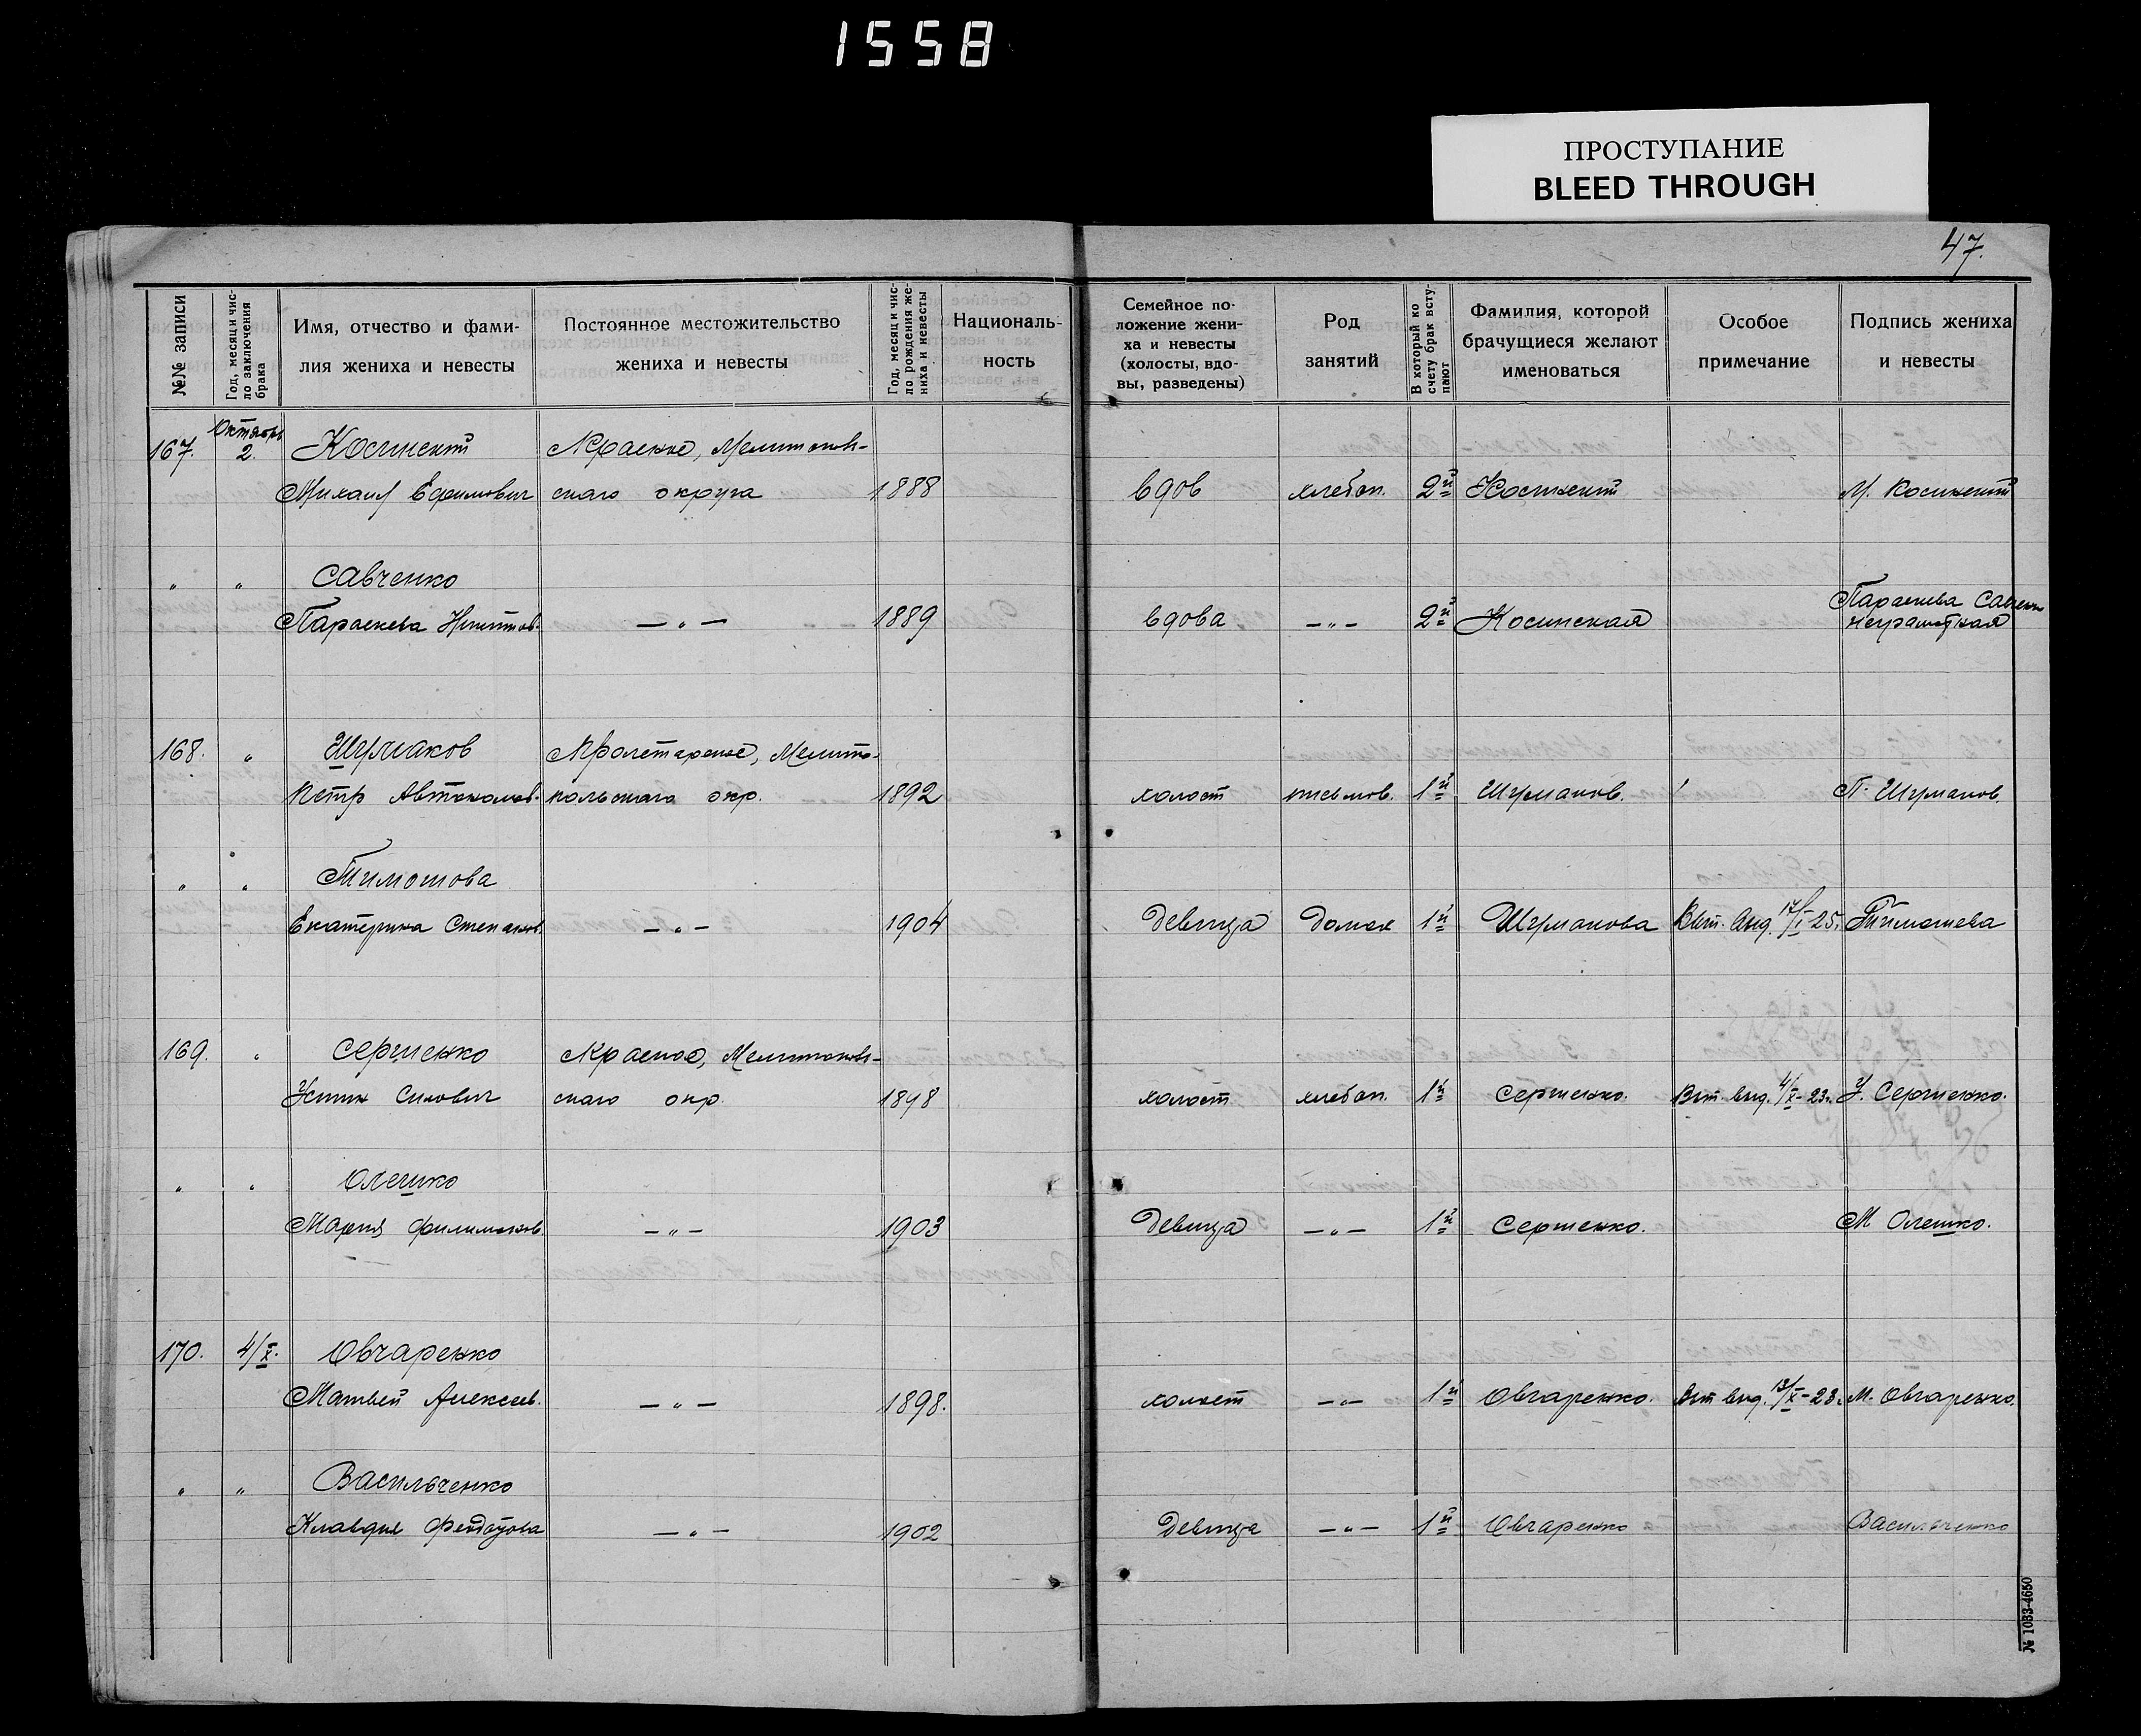 1558
ПРОСТУПАНИЕ
BLEED THROUGH
47.
№№ записи
Год, месяц и чис-
ло заключения
брака
Имя, отчество и фами-
лия жениха и невесты
Постоянное местожительство
жениха и невесты
Год, месяц и чис-
ло рождения же-
ниха и невесты
Националь-
ность
Семейное по-
ложение жени-
ха и невесты
(холосты, вдо-
вы, разведены)
Род
занятий
В который ко
счету брак всту-
пают
Фамилия, которой
брачущиеся желают
именоваться
Особое
примечание
Подпись жениха
и невесты
Октябрь
167. 2. Косинский
Михаил Ефимович скаго округа 1888 вдов хлебоп. 2й Косинский М. Косинский
" " Савченко
Параскева — " — 1889 вдова — " — 2й Косинская Параскева
неграмотная
168. " Шурмаков
Петр Автономов. польскаго окр. 1892 холост письмов. 1й Шурмаков. П. Шурмаков.
" " Тимошова
Екатерина Степанов. — " — 1904 девица домох 1й Шурмакова 25. Тимошева
169. " Сергиенко Красное,
Устин Силович скаго окр. 1898 холост хлебоп. 1й Сергиенко. 4/X-23г. У. Сергиенко.
" " Олешко
Мария Филимонов. — " — 1903 девица — " — 1й Сергиенко. М Олешко.
170. 4/X. Овчаренко
Матвей Алексеев. — " — 1898. холост — " — 1й Овчаренко. М. Овчаренко.
" " Васильченко
Клавдия — " — 1902 девица — " — 1й Овчаренко Васильченко
№ 1033-4650